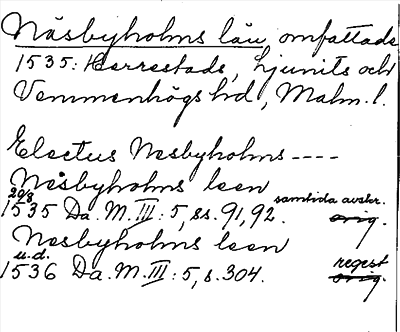 Näsbyholms län omfattade
1535: Herrestads, Ljunits och
Vemmenhögs hd, Malm. l.
Electus Nesbyholms ----
Nesbyholms leen
20/8 1535 Da. M. III: 5, ss. 91, 92. samtida avskr. orig.
Nesbyholms leen
u.d. 1536 Da. M. III: 5, s. 304. regest orig.